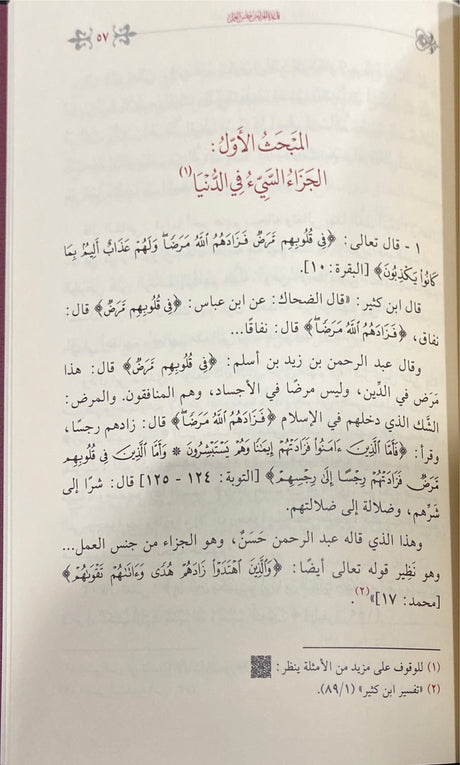 ٥٧
المَبْحَثُ الأَوَّلُ:
الجَزَاءُ السَّيِّءُ فِي الدُّنْيَا(١)
١ - قال تعالى: ﴿فِي قُلُوبِهِم مَّرَضٌ فَزَادَهُمُ ٱللَّهُ مَرَضًاۖ وَلَهُمْ عَذَابٌ أَلِيمٌۢ بِمَا
كَانُواْ يَكْذِبُونَ﴾ [البقرة: ١٠].
قال ابن كثير: «قال الضحاك: عن ابن عباس: ﴿فِي قُلُوبِهِم مَّرَضٌ﴾ قال:
نفاق، ﴿فَزَادَهُمُ ٱللَّهُ مَرَضًاۖ﴾ قال: نفاقًا...
وقال عبد الرحمن بن زيد بن أسلم: ﴿فِي قُلُوبِهِم مَّرَضٌ﴾ قال: هذا
مَرَض في الدِّين، وليس مرضًا في الأجساد، وهم المنافقون. والمرض:
الشَّك الذي دخلهم في الإسلام ﴿فَزَادَهُمُ ٱللَّهُ مَرَضًاۖ﴾ قال: زادهم رجسًا،
وقرأ: ﴿فَأَمَّا ٱلَّذِينَ ءَامَنُواْ فَزَادَتْهُمْ إِيمَٰنًا وَهُمْ يَسْتَبْشِرُونَ * وَأَمَّا ٱلَّذِينَ فِي قُلُوبِهِم
مَّرَضٌ فَزَادَتْهُمْ رِجْسًا إِلَىٰ رِجْسِهِمْ﴾ [التوبة: ١٢٤ - ١٢٥] قال: شرًا إلى
شَرِّهم، وضلالة إلى ضلالتهم.
وهذا الذي قاله عبد الرحمن حَسَنٌ، وهو الجزاء من جنس العمل...
وهو نَظِير قوله تعالى أيضًا: ﴿وَٱلَّذِينَ ٱهْتَدَوْاْ زَادَهُمْ هُدًى وَءَاتَىٰهُمْ تَقْوَىٰهُمْ﴾
[محمد: ١٧]»(٢).
(١) للوقوف على مزيد من الأمثلة ينظر:
(٢) «تفسير ابن كثير» (٨٩/١).